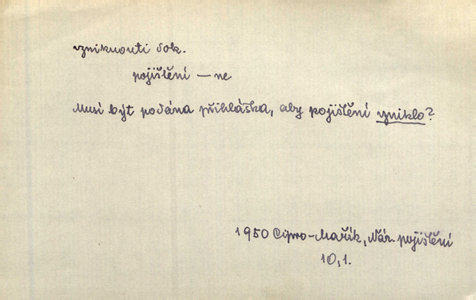 vzniknouti dok.
pojištění — ne
Musí být podána přihláška, aby pojištění vzniklo?
1950 Cipro-Mařík, Nár. pojištění
10,1.